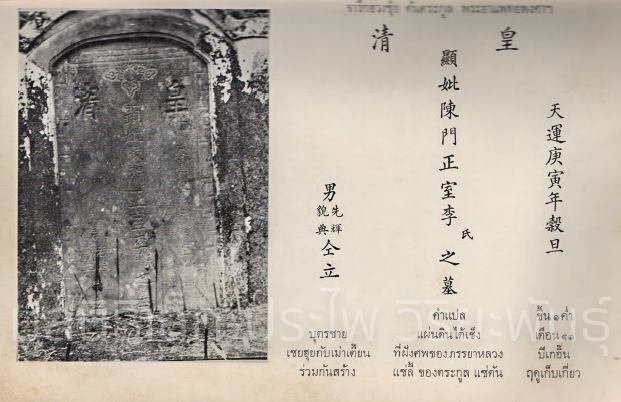 จารึกฮวงซุ้ย ต้นตระกูล
皇清
天運庚寅年穀旦
顯妣陳門正室李氏之墓
男先輝貌典仝立
คำแปล
แผ่นดินไต้เช็ง
ที่ฝังศพของภรรยาหลวง
แซ่ลี้ ของตระกูล แซ่ตัน
ขึ้น ๑ ค่ำ
เดือน ๑๑
ปีเกอิ๊น
ฤดูเก็บเกี่ยว
บุตรชาย
เซยฮุยกับเม่าเตี้ยน
ร่วมกันสร้าง
ประไพ วิริยะพันธุ์
皇清